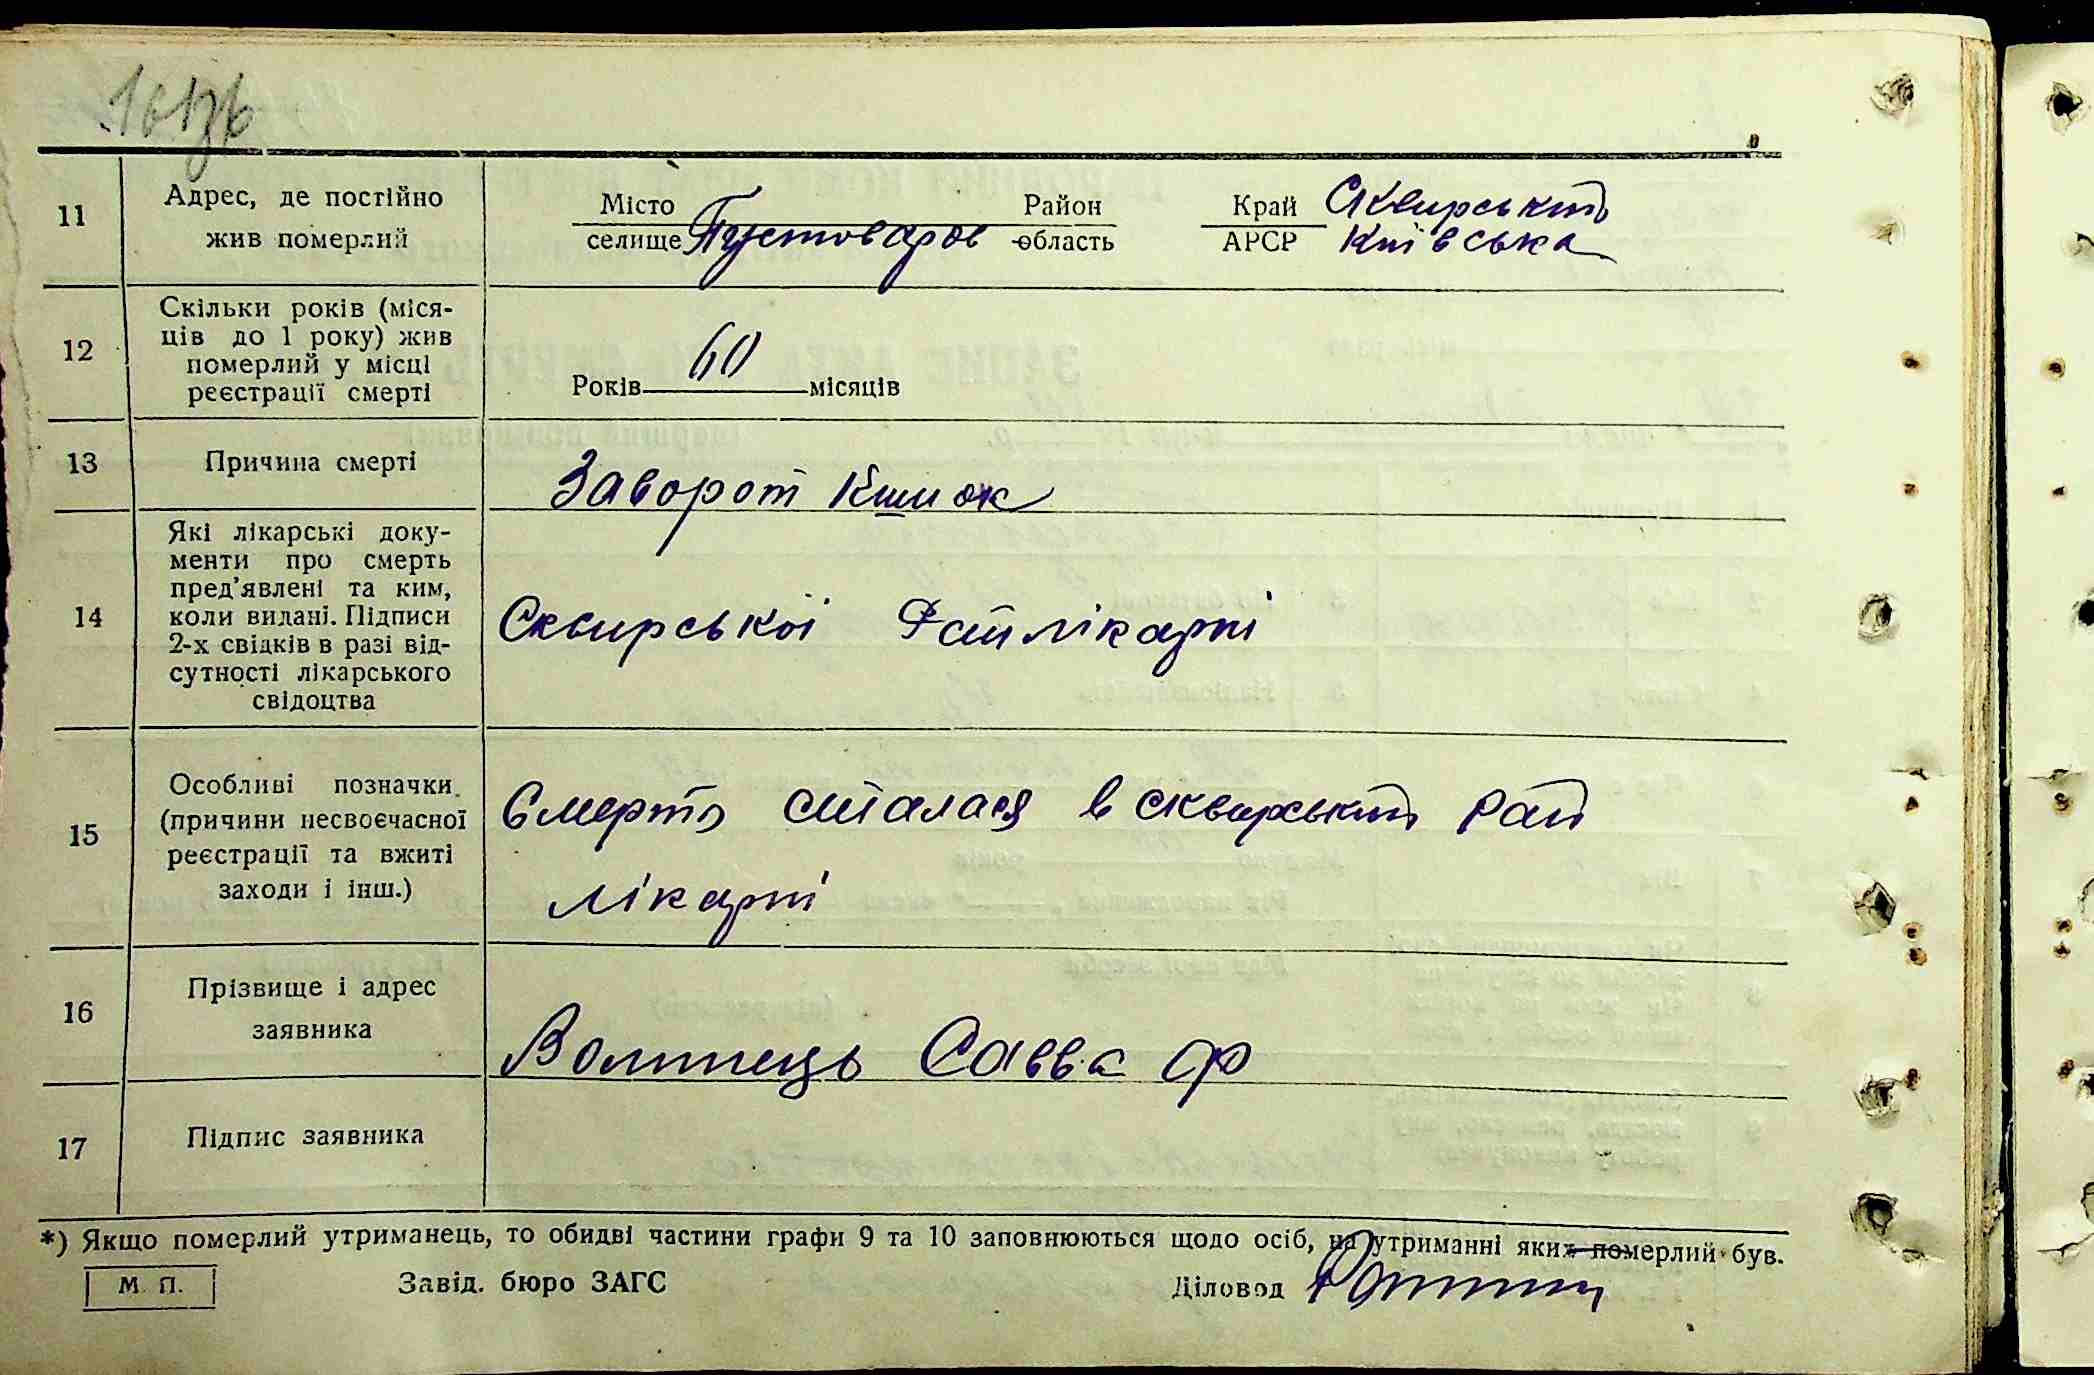 11
Адрес, де постійно
жив померлий
Місто Район Край Сквирський
селище Пустоваров область АРСР Київська
12
Скільки років (міся-
ців до 1 року) жив
померлий у місці
реєстрації смерті
Років 60 місяців
13
Причина смерті
Заворот Кишок
14
Які лікарські доку-
менти про смерть
пред’явлені та ким,
коли видані. Підписи
2-х свідків в разі від-
сутності лікарського
свідоцтва
Сквирської Райлікарні
15
Особливі позначки
(причини несвоєчасної
реєстрації та вжиті
заходи і інш.)
Смерть сталася в сквирській Рай
лікарні
16
Прізвище і адрес
заявника
Волинець Савва
17
Підпис заявника
*) Якщо померлий утриманець, то обидві частини графи 9 та 10 заповнюються щодо осіб, на утриманні яких померлий був.
М. П. Завід. бюро ЗАГС Діловод